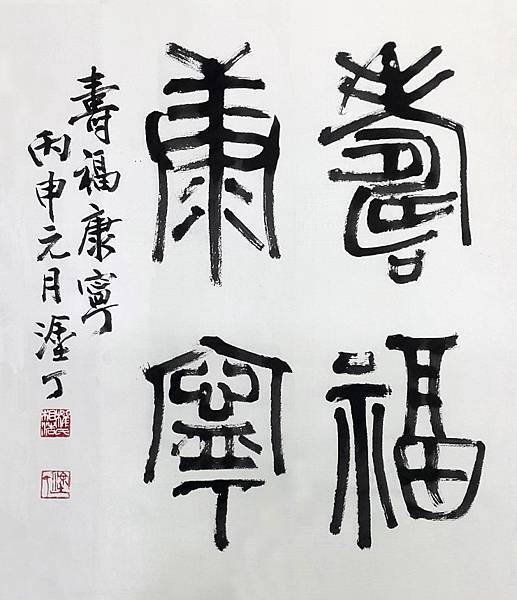 壽福
康寧
壽福康寧
丙申元月塗丁